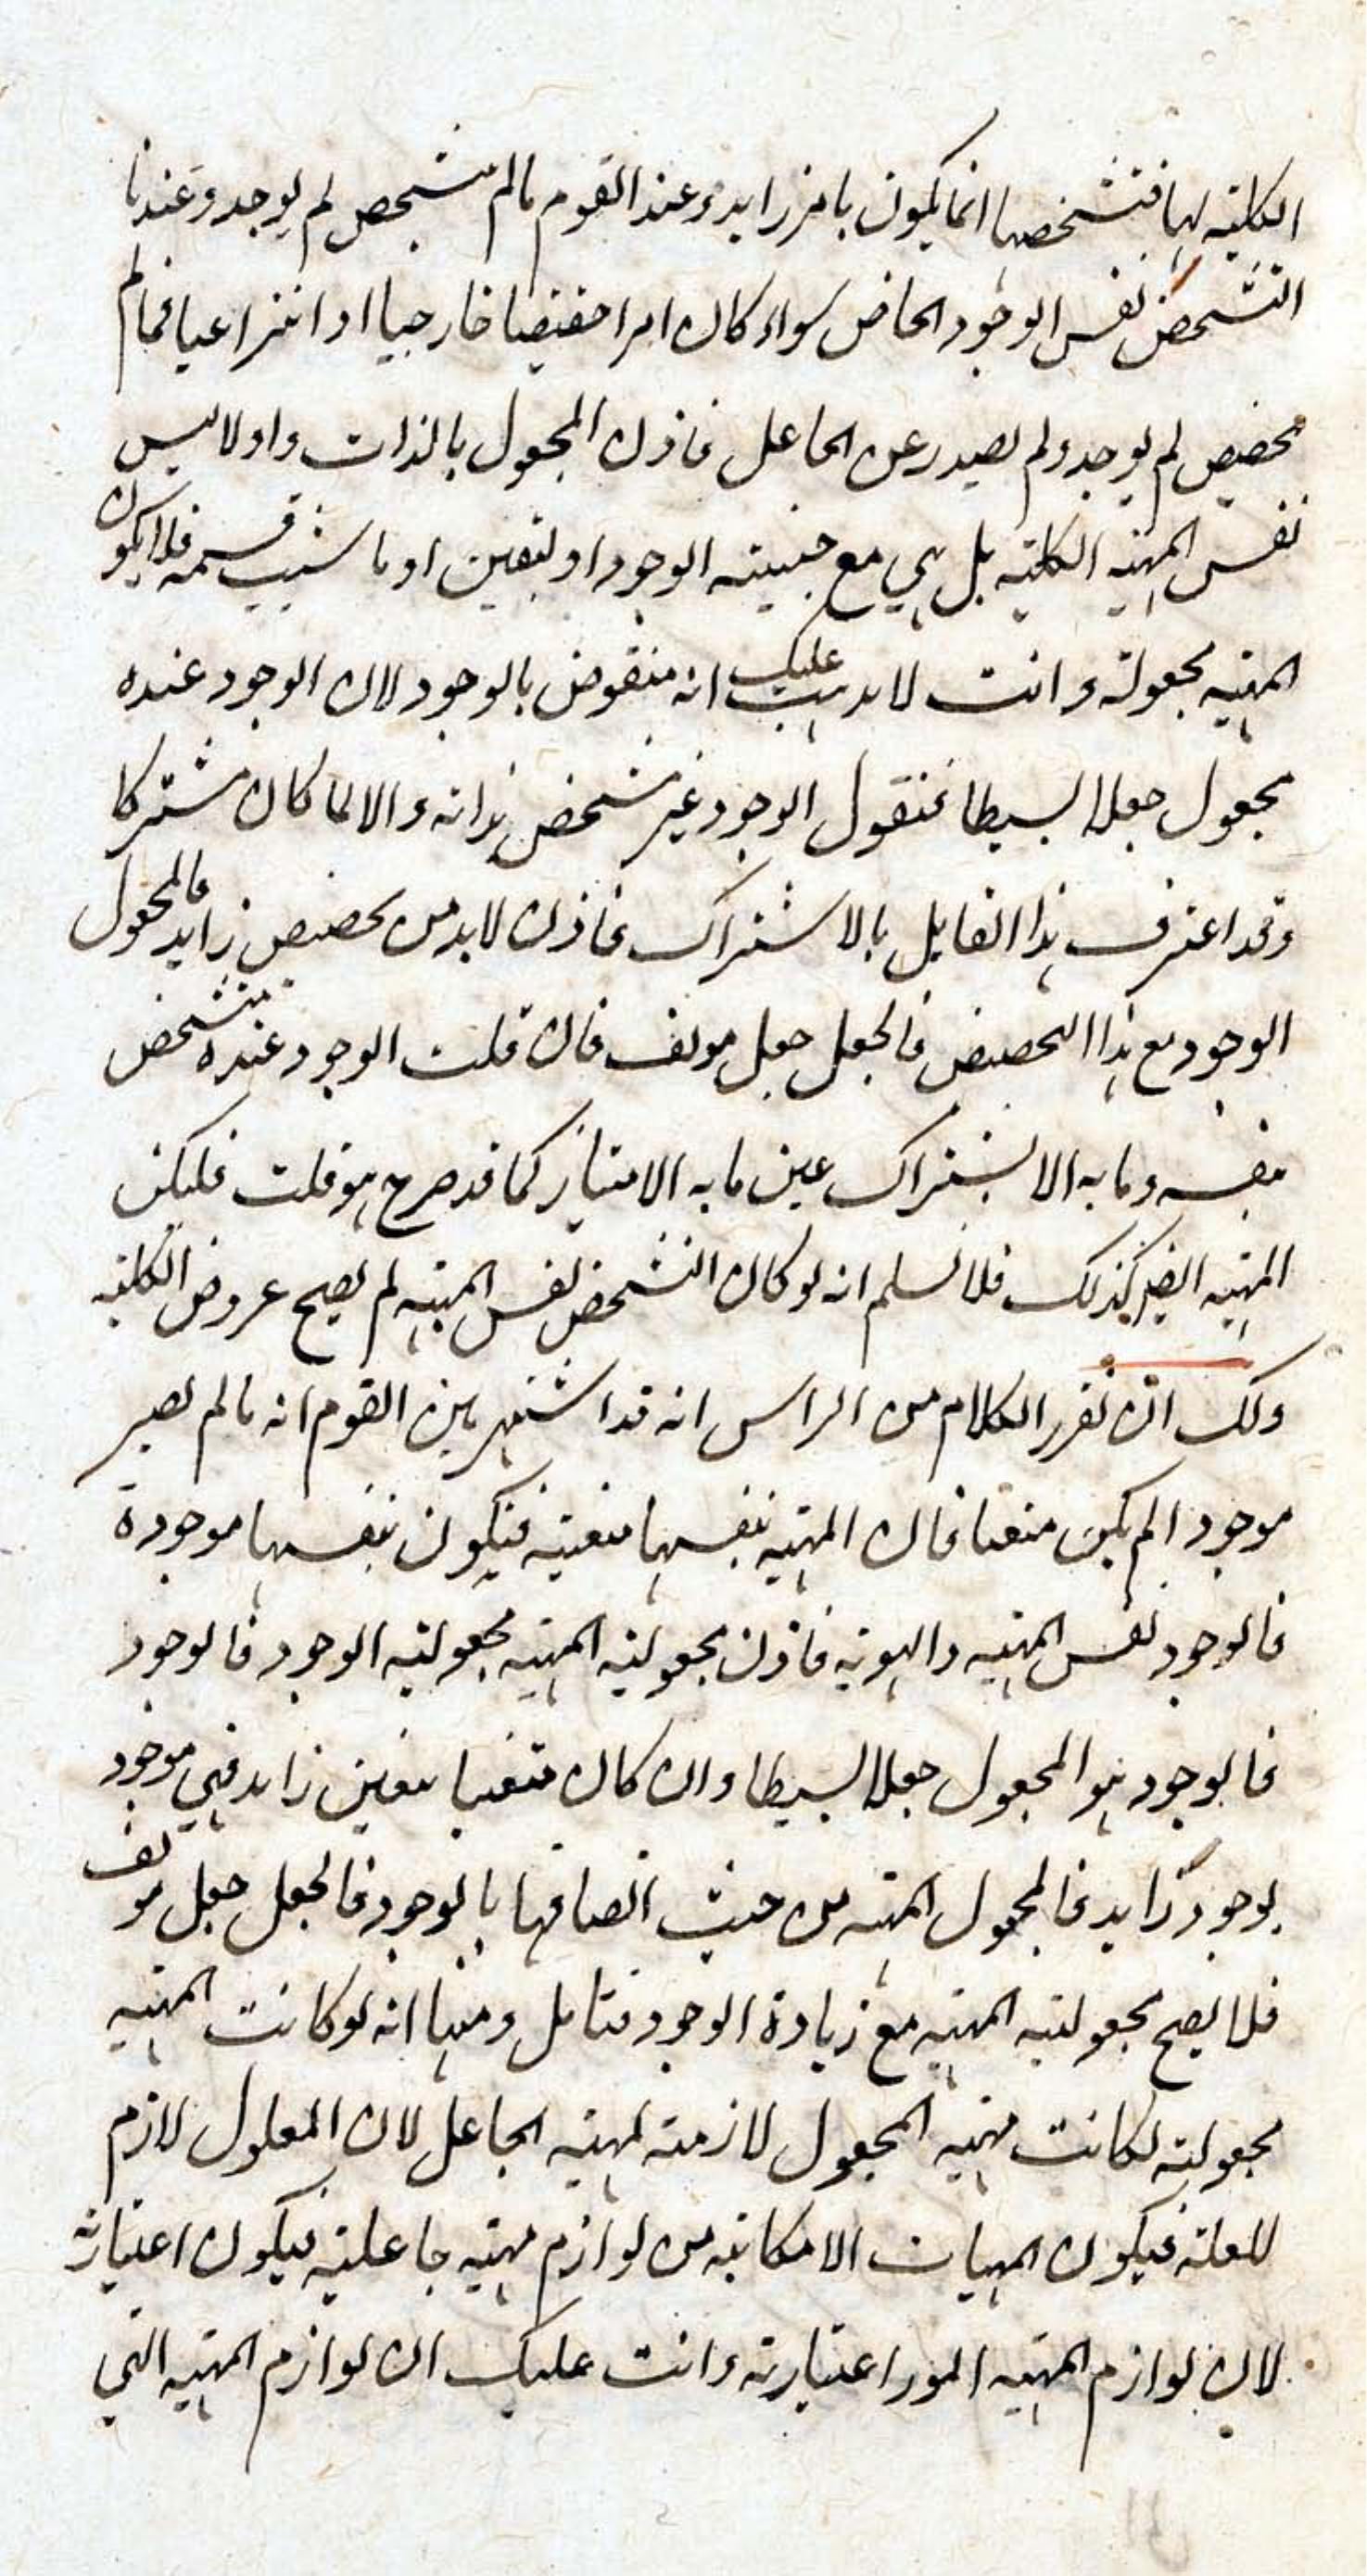 الكلية لها فتشخصها انما يكون بامر زايد وعند القوم ما لم يتشخص لم يوجد وعندنا
التشخص نفس الوجود الخاص سواء كان امرا حقيقيا خارجيا او انتزاعيا فما لم
تخصيص لم يوجد ولم يصدر عن الجاعل فاذن المجعول بالذات واولا ليس
نفس المهية الكلية بل هي مع حيثية الوجود او تعين او ما شيت قسمه فلا يكون
المهية مجعولة وانت لا يذهب عليك انه منقوض بالوجود لان الوجود عنده
مجعول جعلا بسيطا فنقول الوجود غير متشخص بذاته والا لما كان مشتركا
وقد اعترف هذا القايل بالاشتراك فاذن لا بد من تخصيص زايد فالمجعول
الوجود مع هذا التخصيص فالجعل جعل مولف فان قلت الوجود عنده متشخص
بنفسه وما به الاشتراك عين ما به الامتياز كما قد صرح هو قلت فليكن
المهية ايضا كذلك فلا نسلم انه لو كان التشخص نفس المهية لم يصح عروض الكلية
ولك ان تقرر الكلام من الراس انه قد اشتهر بين القوم انه ما لم يصير
موجودا لم يكن متعينا فان المهية بنفسها متعينة فيكون بنفسها موجودة
فالوجود نفس المهية والهوية فاذن مجعولية المهية مجعولية الوجود فالوجود
فالوجود هو المجعول جعلا بسيطا وان كان متعينا بتعين زايد فهي موجود
بوجود زايد فالمجعول المهية من حيث اتصافها بالوجود فالجعل جعل مولف
فلا يصح مجعولية المهية مع زيادة الوجود فتامل ومنها انه لو كانت المهية
مجعولية لكانت مهية المجعول لازمة لمهية الجاعل لان المعلول لازم
للعلة فيكون المهيات الامكانية من لوازم مهية جاعلية فيكون اعتبارية
لان لوازم المهية امور اعتبارية وانت عليك ان لوازم المهية التي